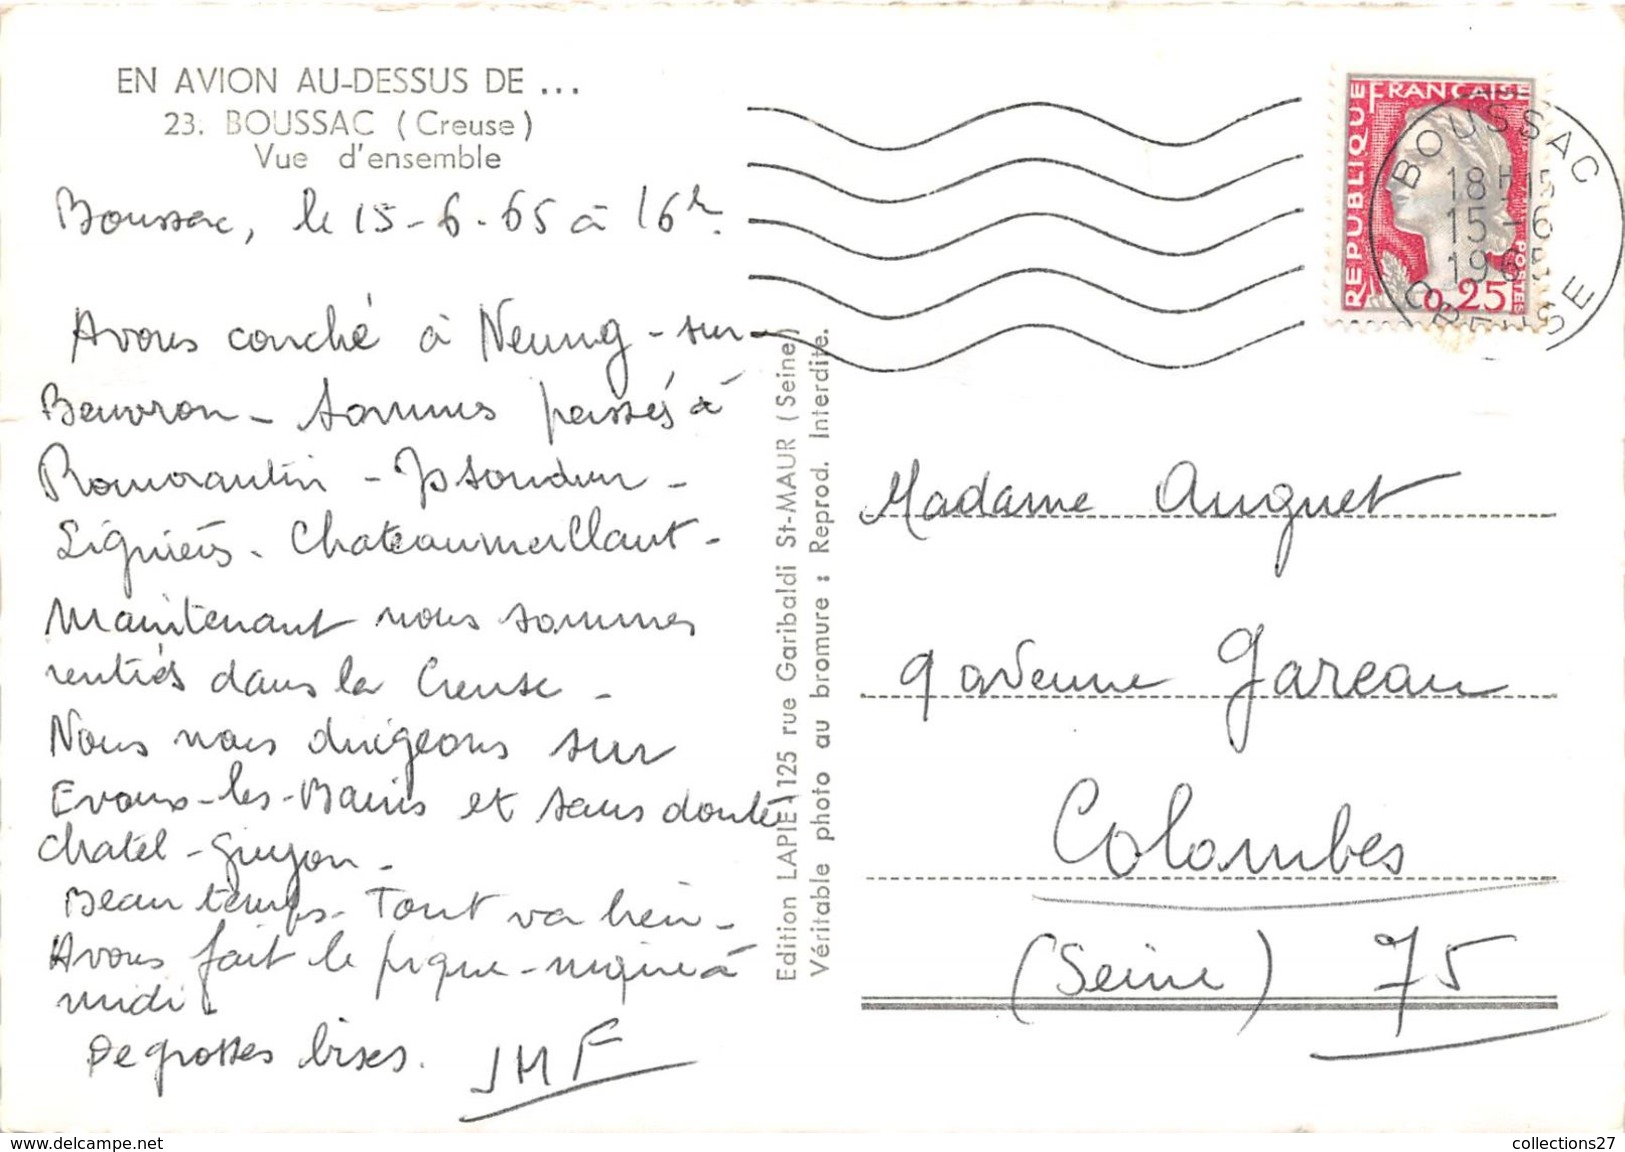 EN AVION AU-DESSUS DE ...
23. BOUSSAC (Creuse)
Vue d'ensemble
Boussac, le 15-6-65 à 16h.
Avons couché à Neung-sur-
Beuvron - sommes passés à
Romorantin - Issoudun -
Lignières - Chateaumeillant -
Maintenant nous sommes
rentrés dans la Creuse -
Nous nous dirigeons sur
Evaux-les-Bains et sans doute
Chatel-Guyon -
Beau temps - Tout va bien -
Avons fait le pique-nique à
midi.
De grosses bises. JMF
Edition LAPIE 125 rue Garibaldi St-MAUR (Seine)
Véritable photo au bromure : Reprod. Interdite.
REPUBLIQUE FRANÇAISE
POSTES
0,25
BOUSSAC
18H15
15-6
1965
CREUSE
Madame Auguet
9 avenue Gareau
Colombes
(Seine) 75
www.delcampe.net
collections27